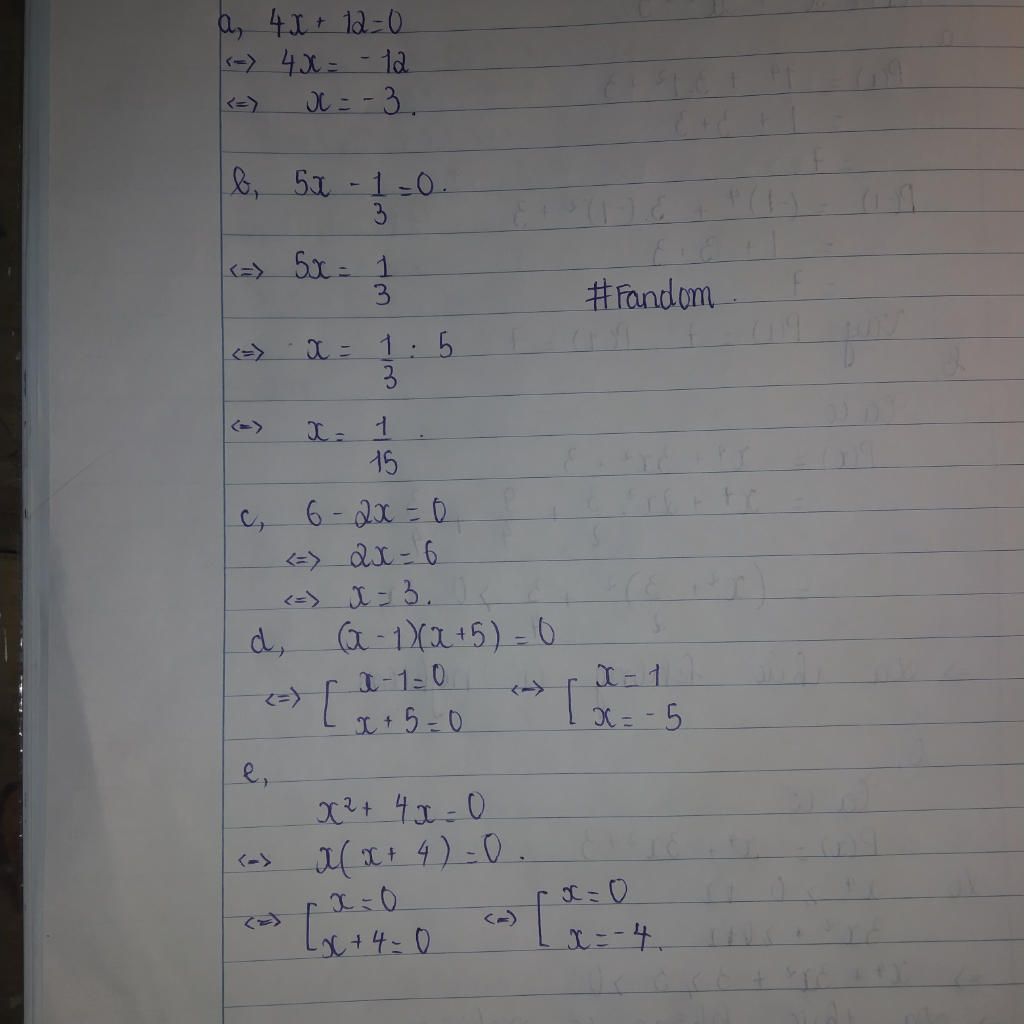 a, 4x + 12 = 0
<=> 4x = -12
<=> x = -3.
b, 5x - 1/3 = 0.
<=> 5x = 1/3
#Fandom.
<=> x = 1/3 : 5
<=> x = 1/15.
c, 6 - 2x = 0
<=> 2x = 6
<=> x = 3.
d, (x - 1)(x + 5) = 0
<=> [ x - 1 = 0 <=> [ x = 1
x + 5 = 0 x = -5
e,
x² + 4x = 0
<=> x(x + 4) = 0.
<=> [ x = 0 <=> [ x = 0
x + 4 = 0 x = -4.